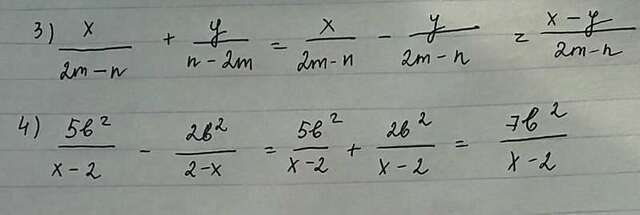 3) x/(2m-n) + y/(n-2m) = x/(2m-n) - y/(2m-n) = (x-y)/(2m-n)
4) 5b²/(x-2) - 2b²/(2-x) = 5b²/(x-2) + 2b²/(x-2) = 7b²/(x-2)